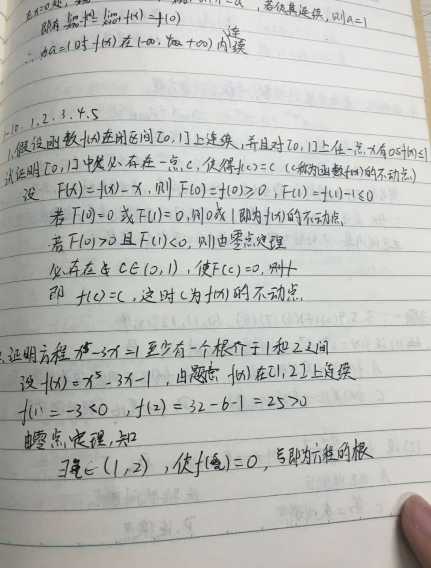 即有 f(x) = f(0)
若使其连续,则a=1
∴ 当a=1时 f(x) 在 (-∞, +∞) 内连续
1-10. 1. 2. 3. 4. 5
1. 假设函数f(x)在闭区间[0,1]上连续,并且对[0,1]上任一点x有0≤f(x)≤1
试证明[0,1]中必存在一点c,使得f(c)=c (c称为函数f(x)的不动点)
设 F(x)=f(x)-x,则F(0)=f(0)≥0,F(1)=f(1)-1≤0
若F(0)=0 或F(1)=0,则0或1即为f(x)的不动点
若F(0)>0且F(1)<0,则由零点定理
必存在 c∈(0,1),使F(c)=0,则
即 f(c)=c,这时c为f(x)的不动点
证明方程 x⁵-3x=1至少有一个根介于1和2之间
设f(x)=x⁵-3x-1,由题意 f(x)在[1,2]上连续
f(1)=-3<0,f(2)=32-6-1=25>0
由零点定理知
∃ξ∈(1,2),使f(ξ)=0,ξ即为方程的根